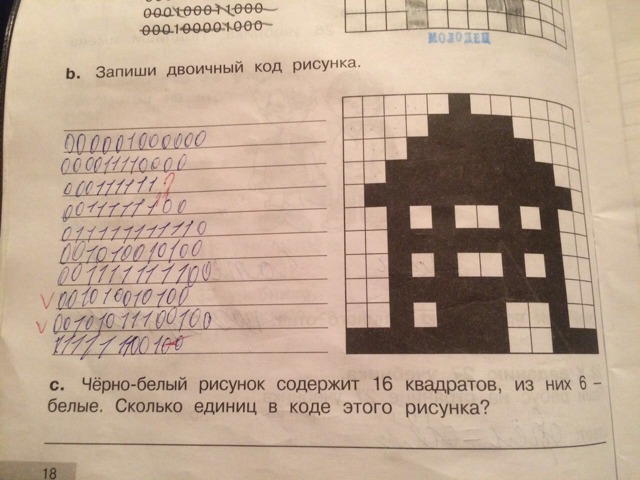 000100011000
000100001000
МОЛОДЕЦ
b. Запиши двоичный код рисунка.
000001000000
00001110000
000111111?
00111111100
011111111110
001010010100
001111111100
V 00101001010 0
V 0010101110010 0
111111100100
c. Чёрно-белый рисунок содержит 16 квадратов, из них 6 –
белые. Сколько единиц в коде этого рисунка?
18